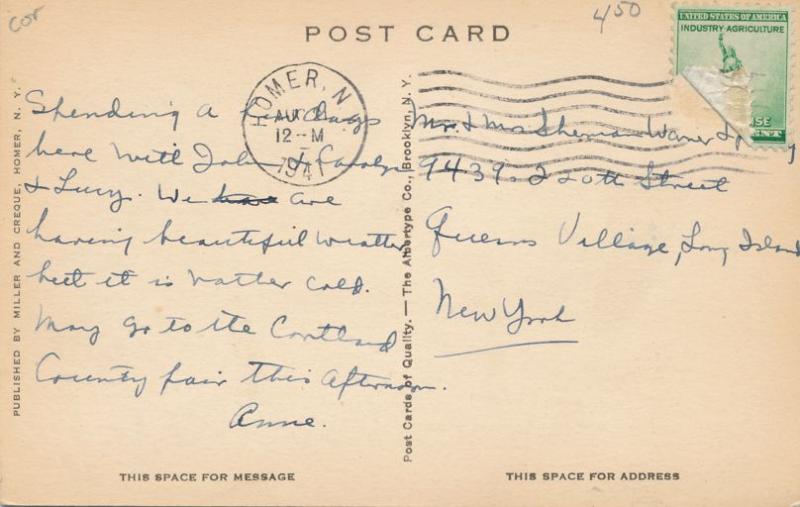 cor
POST CARD
450
UNITED STATES OF AMERICA
INDUSTRY·AGRICULTURE
HOMER, N.
AU
12–M
1941
Spending a few days
here with John & Carolyn
& Lucy. We have are
having beautiful weather
but it is rather cold.
May go to the Cortland
County fair this afternoon.
Anne.
Mr. & Mrs Sherman Warner
9439–220th Street
Queens Village, Long Island
New York
PUBLISHED BY MILLER AND CREQUE, HOMER, N. Y.
Post Cards of Quality. — The Albertype Co., Brooklyn, N. Y.
THIS SPACE FOR MESSAGE
THIS SPACE FOR ADDRESS